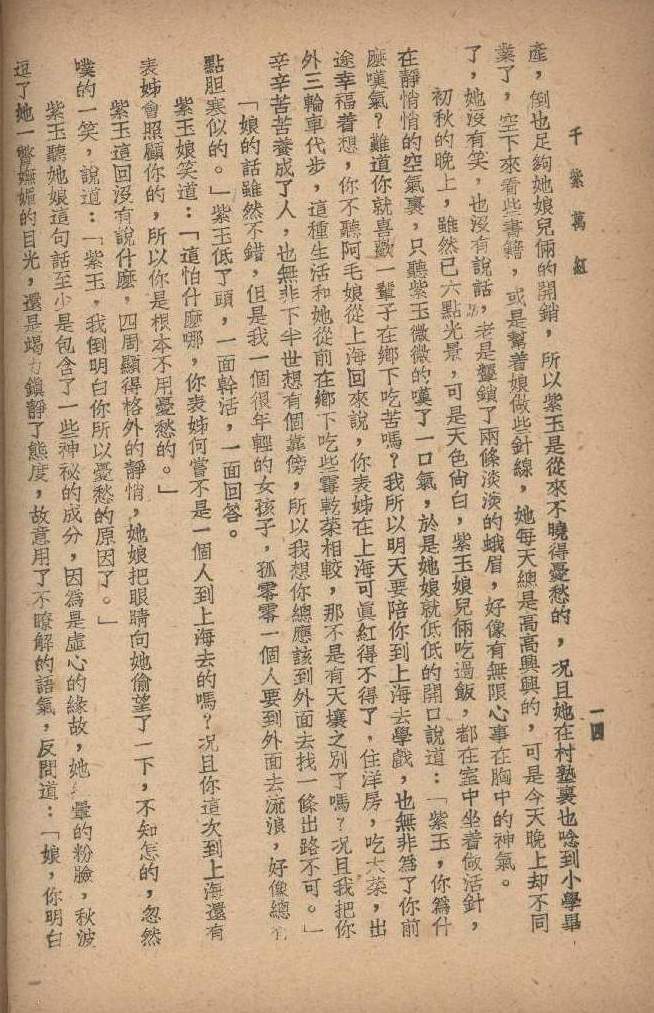 千紫萬紅
一四
產，倒也足夠她娘兒倆的開銷，所以紫玉是從來不曉得憂愁的，況且她在村塾裏也唸到小學畢
業了，空下來看些書籍，或是幫着娘做些針線，她每天總是高高興興的，可是今天晚上却不同
了，她沒有笑，也沒有說話，老是蹙鎖了兩條淡淡的蛾眉，好像有無限心事在胸中的神氣。
初秋的晚上，雖然已六點光景，可是天色尙白，紫玉娘兒倆吃過飯，都在室中坐着做活針，
在靜悄悄的空氣裏，只聽紫玉微微的嘆了一口氣，於是她娘就低低的開口說道：「紫玉，你爲什
麽嘆氣？難道你就喜歡一輩子在鄉下吃苦嗎？我所以明天要陪你到上海去學戲，也無非爲了你前
途幸福着想，你不聽阿毛娘從上海回來說，你表姊在上海可眞紅得不得了，住洋房，吃大菜，出
外三輪車代步，這種生活和她從前在鄉下吃些霉乾菜相較，那不是有天壤之別了嗎？況且我把你
辛辛苦苦養成了人，也無非下半世想有個靠傍，所以我想你總應該到外面去找一條出路不可。」
「娘的話雖然不錯，但是我一個很年輕的女孩子，孤零零一個人要到外面去流浪，好像總有
點胆寒似的。」紫玉低了頭，一面幹活，一面回答。
紫玉娘笑道：「這怕什麽哪，你表姊何嘗不是一個人到上海去的嗎？況且你這次到上海還有
表姊會照顧你的，所以你是根本不用憂愁的。」
紫玉這回沒有說什麽，四周顯得格外的靜悄，她娘把眼睛向她偷望了一下，不知怎的，忽然
噗的一笑，說道：「紫玉，我倒明白你所以憂愁的原因了。」
紫玉聽她娘這句話至少是包含了一些神祕的成分，因爲是虛心的緣故，她暈的粉臉，秋波
逗了她一瞥嫵媚的目光，還是竭力鎭靜了態度，故意用了不瞭解的語氣，反問道：「娘，你明白